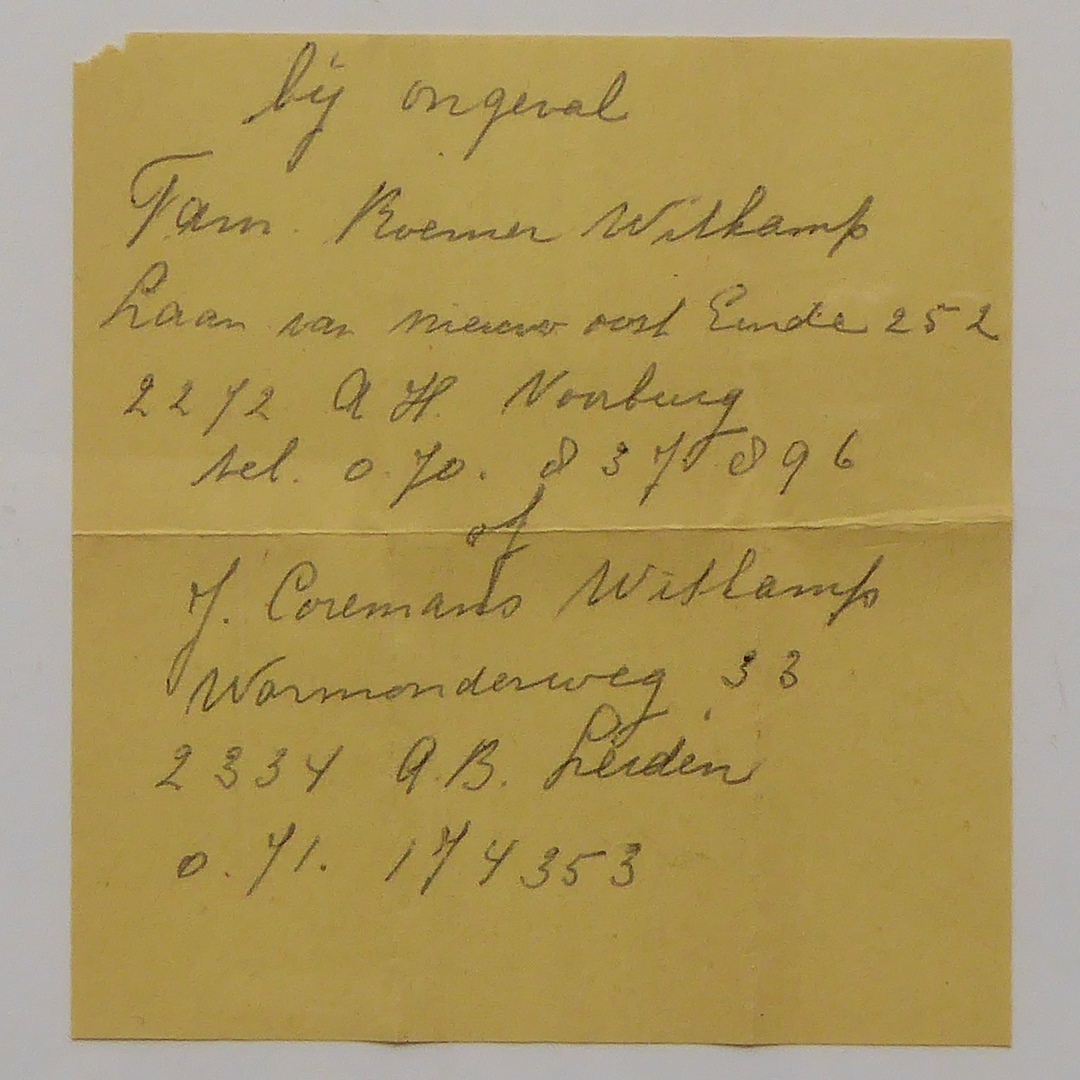 bij ongeval
Fam. Roemer Witkamp
Laan van nieuw oost Einde 252
2272 A H. Voorburg
tel. 0.70. 837896
of
J. Coremans Witkamp
Warmonderweg 33
2334 A.B. Leiden
0.71. 174353